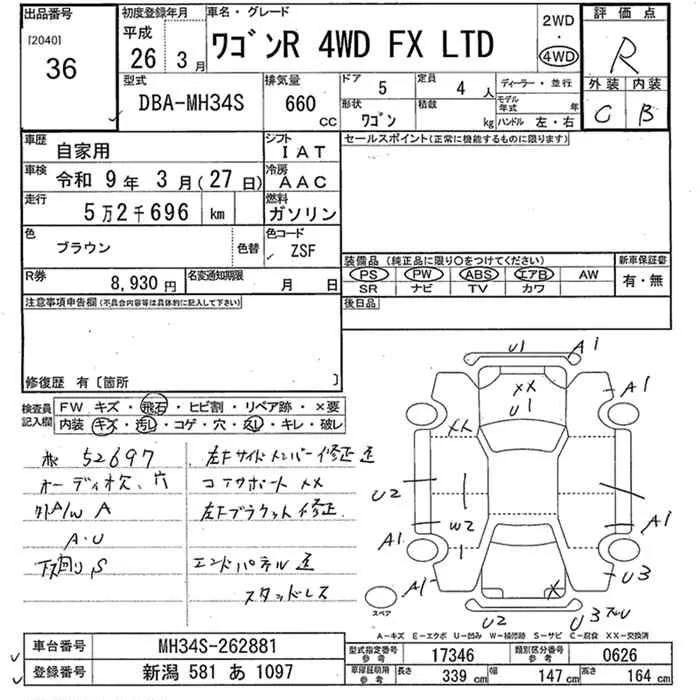 出品番号
[2040]
36
初度登録年月
平成
26 3月
車名・グレード
ワゴンR 4WD FX LTD
2WD
・
4WD
評価点
R
外装 内装
C B
型式
DBA-MH34S
排気量
660
cc
ドア 5
定員 4 人
ディーラー・並行
形状 ワゴン
積載 kg
モデル年式 年
ハンドル 左・右
車歴 自家用
シフト IAT
セールスポイント(正常に機能するものに限ります)
車検 令和 9年 3月(27日)
冷房 AAC
走行 5万2千696 km
燃料 ガソリン
色 ブラウン
色替
色コード ZSF
装備品 (純正品に限り○をつけてください)
新車保証書
PS PW ABS エアB AW
有・無
SR ナビ TV カワ
R券 8,930円
名変通知期限 月 日
後日品
注意事項申告欄(不具合内容等は具体的に記入して下さい)
修復歴 有〔箇所 〕
検査員記入欄
FW キズ・飛石・ヒビ割・リペア跡・×要
内装 キズ・汚し・コゲ・穴・スレ・キレ・破レ
52697
オーディオ欠、穴
外A/W A
A・U
下廻り、S
左Fサイドメンバー修正
コアサポート XX
左Fブラケット修正
エンドパネル
スタッドレス
U1 A1
XX
U1
A1
XX
U2
W2
A1
A1
1
A1
U3
X
スペア
U2
U3
A-キズ E-エクボ U-凹み W-補修跡 S-サビ C-腐食 XX-交換済
車台番号 MH34S-262881
型式指定番号 参考 17346
類別区分番号 参考 0626
登録番号 新潟 581 あ 1097
車庫証明用 参考
長さ 339 cm
幅 147 cm
高さ 164 cm